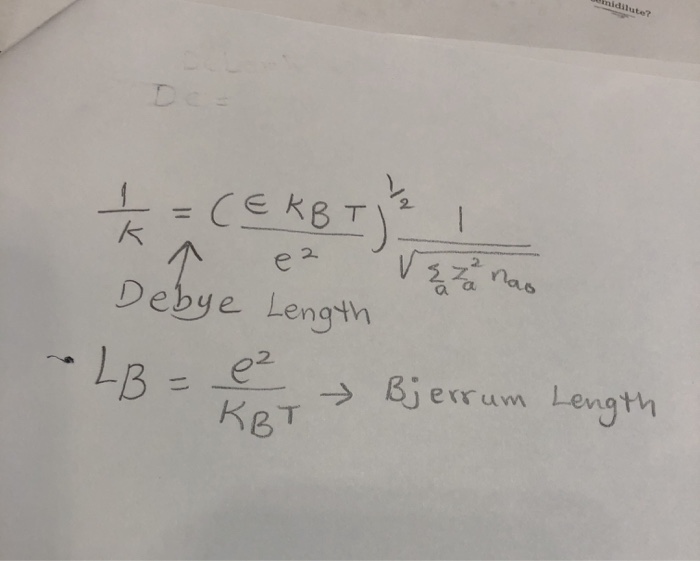 midilute?
De =
1/K = (∈ KBT / e²)^1/2 1 / √Σa Za² nao
Debye Length
LB = e² / KBT → Bjerrum Length